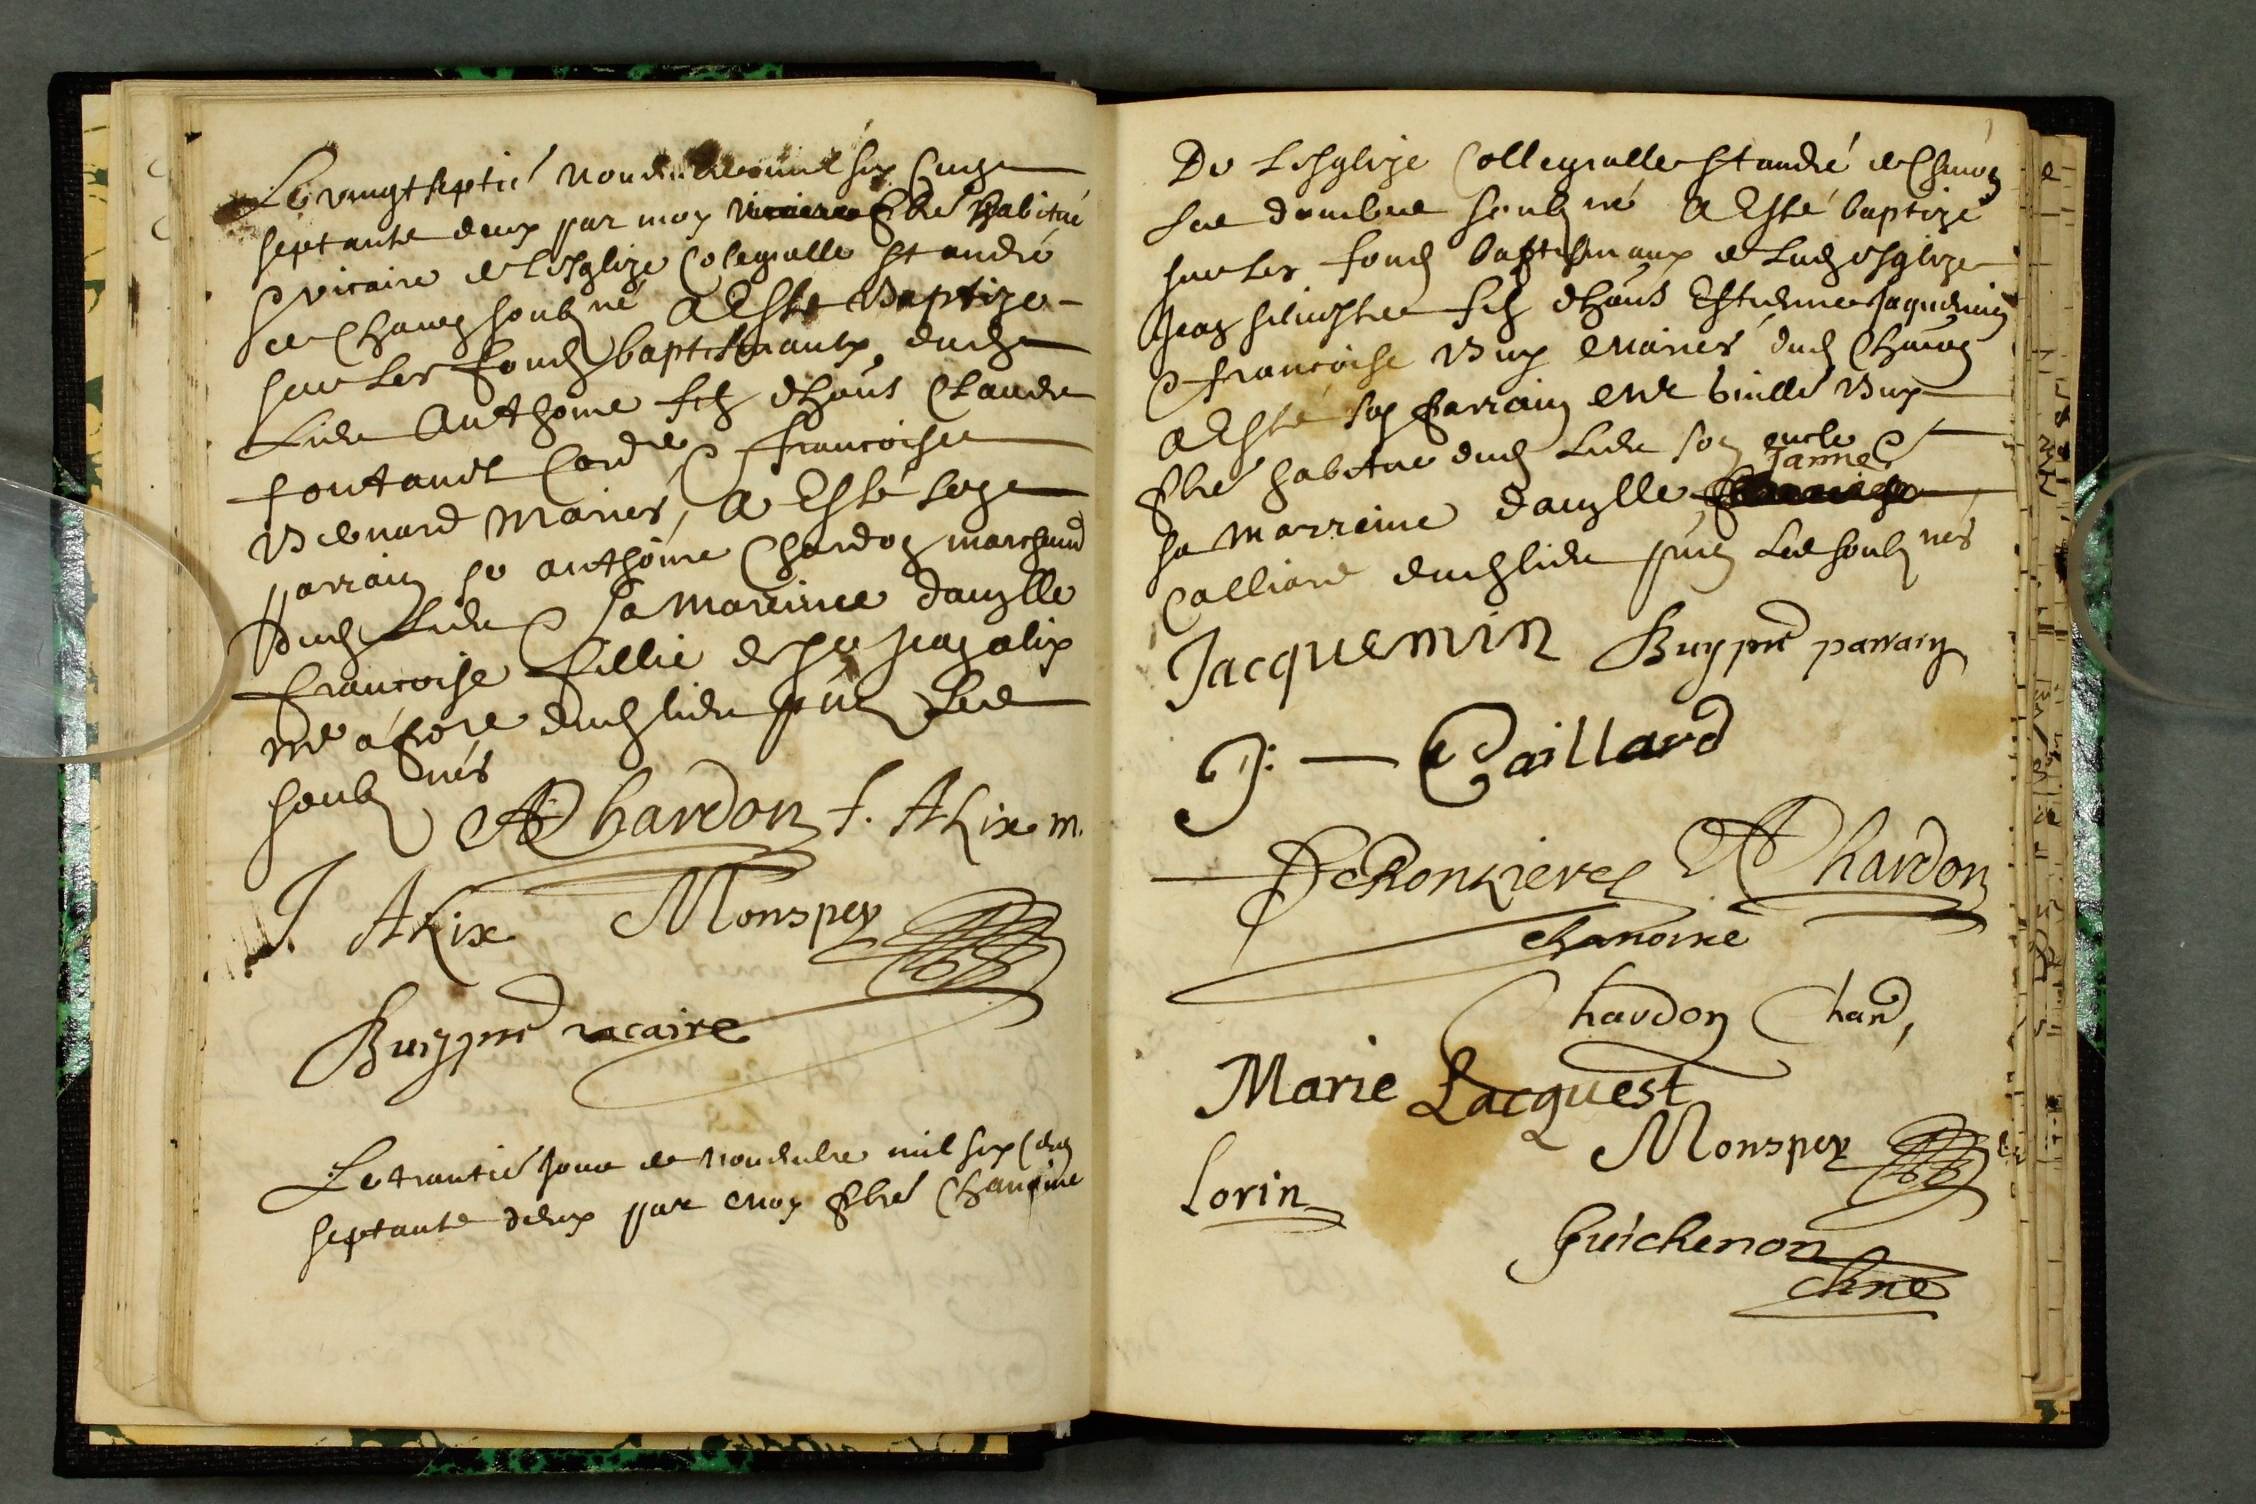 Le vingt septié novembre mil six cens
septante deux par moy pbré habitué
& vicaire de l'esglize colegialle st andré
de soub né a esté baptizé
sur les fonds baptismaux dud
lieu anthoine fils d'hons claude
fontanel & francoise
Benard mariés, a esté son
parrain sr anthoine Chardon marchand
dud lieu & sa mareine damlle
francoise fillie de sr jean alix
me dud lieu les
soub nés
A Chardon f. Alix m.
J. Alix Monspey
Buy pre vicaire
Le trantié jour de novembre mil six cens
septante deux par moy pbré chanoine
De l'esglize collegialle st andré de
soub né a esté baptizé
sur les fonds baptismaux de lad esglize
jean silvestre fils d'hons estienne jaquemin
& francoise Buy mariés dud
a esté son parrain mre Buy
pbré habitué dud lieu son oncle &
sa marreine damlle janne
Calliard dud lieu les soub nés
Jacquemin Buy pre parrain
J: — Caillard
DeRonzieres A Chardon
chanoine
Chardon Chan,
Marie Lacquest
Monspey
Lorin
Guichenon
chne